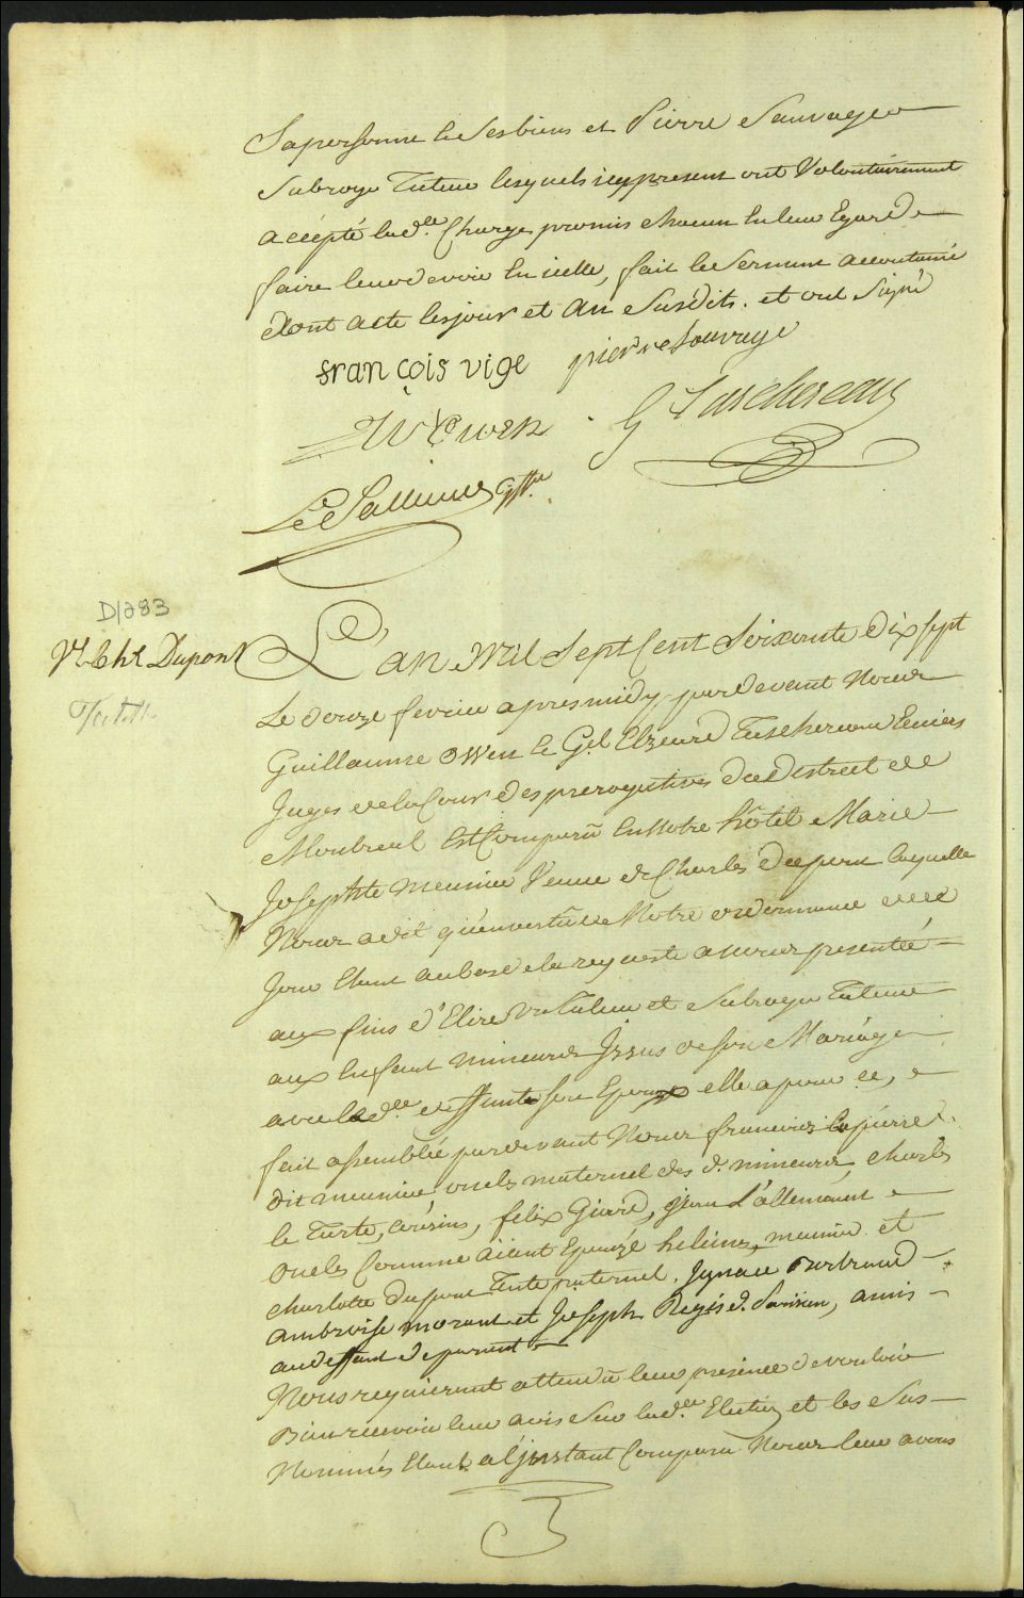 Sa personne & Ses biens et Pierre Sauvage
Subrogé Tuteur lesquels icy present ont Volontairement
accépté lad.e Charge promis chacun En leur Egard de
faire leur devoir En icelle, fait le Serment accoutumé
dont acte les jour et an Susdits. et ont Signé
françois vige pierre Sauvage
W Owen G Taschereau
Le Pallieur Gffier
D1283
Ve. Cht Dupont
Tutelle
L'an Mil Sept Cent Soixante dix Sept
Le douze fevrier apres midy, pardevant Nous
Guillaume Owen & G.el Elzeard Taschereau Ecuiers
Juges de la Cour des prerogatives du District de
Montreal Est Comparû En Notre hôtel Marie
Josephte meunier Veuve de Charles dupont laquelle
Nous a dit qu'en vertû de Notre ordonnance de ce
Jour Etant au bas de la requeste a nous presentée
aux fins d'Elire un Tuteur et Subrogé Tuteur
aux Enfant mineurs Issus de son Mariage
avec led. deffunt son Epoux elle a pour ce,
fait assemblée pardevant Nous françois lapierre
dit meunier oncle maternel des d. mineurs, charles
le Turte, cousins, felix Giard, jean L'allemant
oncles Comme aiant Epouzé heleine meunier et
charlotte dupont Tante paternel. Ignace Bertrand
ambroise morant et Joseph Regis d. Parisien, amis
au deffaut de parent
Nous requierant attendû leur présence de vouloir
Bien recevoir leur avis Sur lad.e Election et les Sus
Nommés Etant a l'jnstant Comparu Nous leur avons